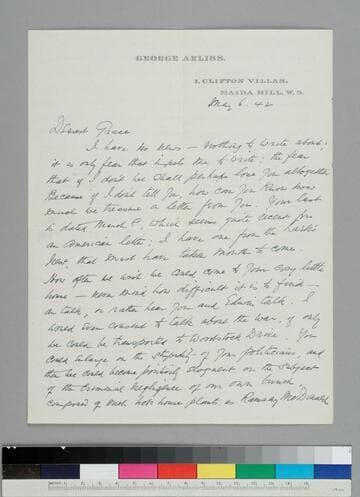 GEORGE ARLISS.
1, CLIFTON VILLAS,
MAIDA HILL, W. 9.
May 6. 42
Dearest Grace
I have no news – nothing to write about;
it is only fear that impels me to write; the fear
that if I don't we shall perhaps lose you altogether
Because if I don't tell you, how can you know how
much we treasure a letter from you. Your last
is dated March 8, which seems quite recent for
an American letter; I have one from the
that must have taken months to come.
How often we wish we could come to your cosy little
home – never mind how difficult it is to find –
or talk, or rather hear you and Edwin talk. I
would even consent to talk about the war, if only
we could be transported to Woodstock Drive. You
could enlarge on the stupidity of your politicians, and
then we could become positively eloquent on the subject
of the criminal negligence of our own bunch
composed of such hot house plants as Ramsay MacDonald